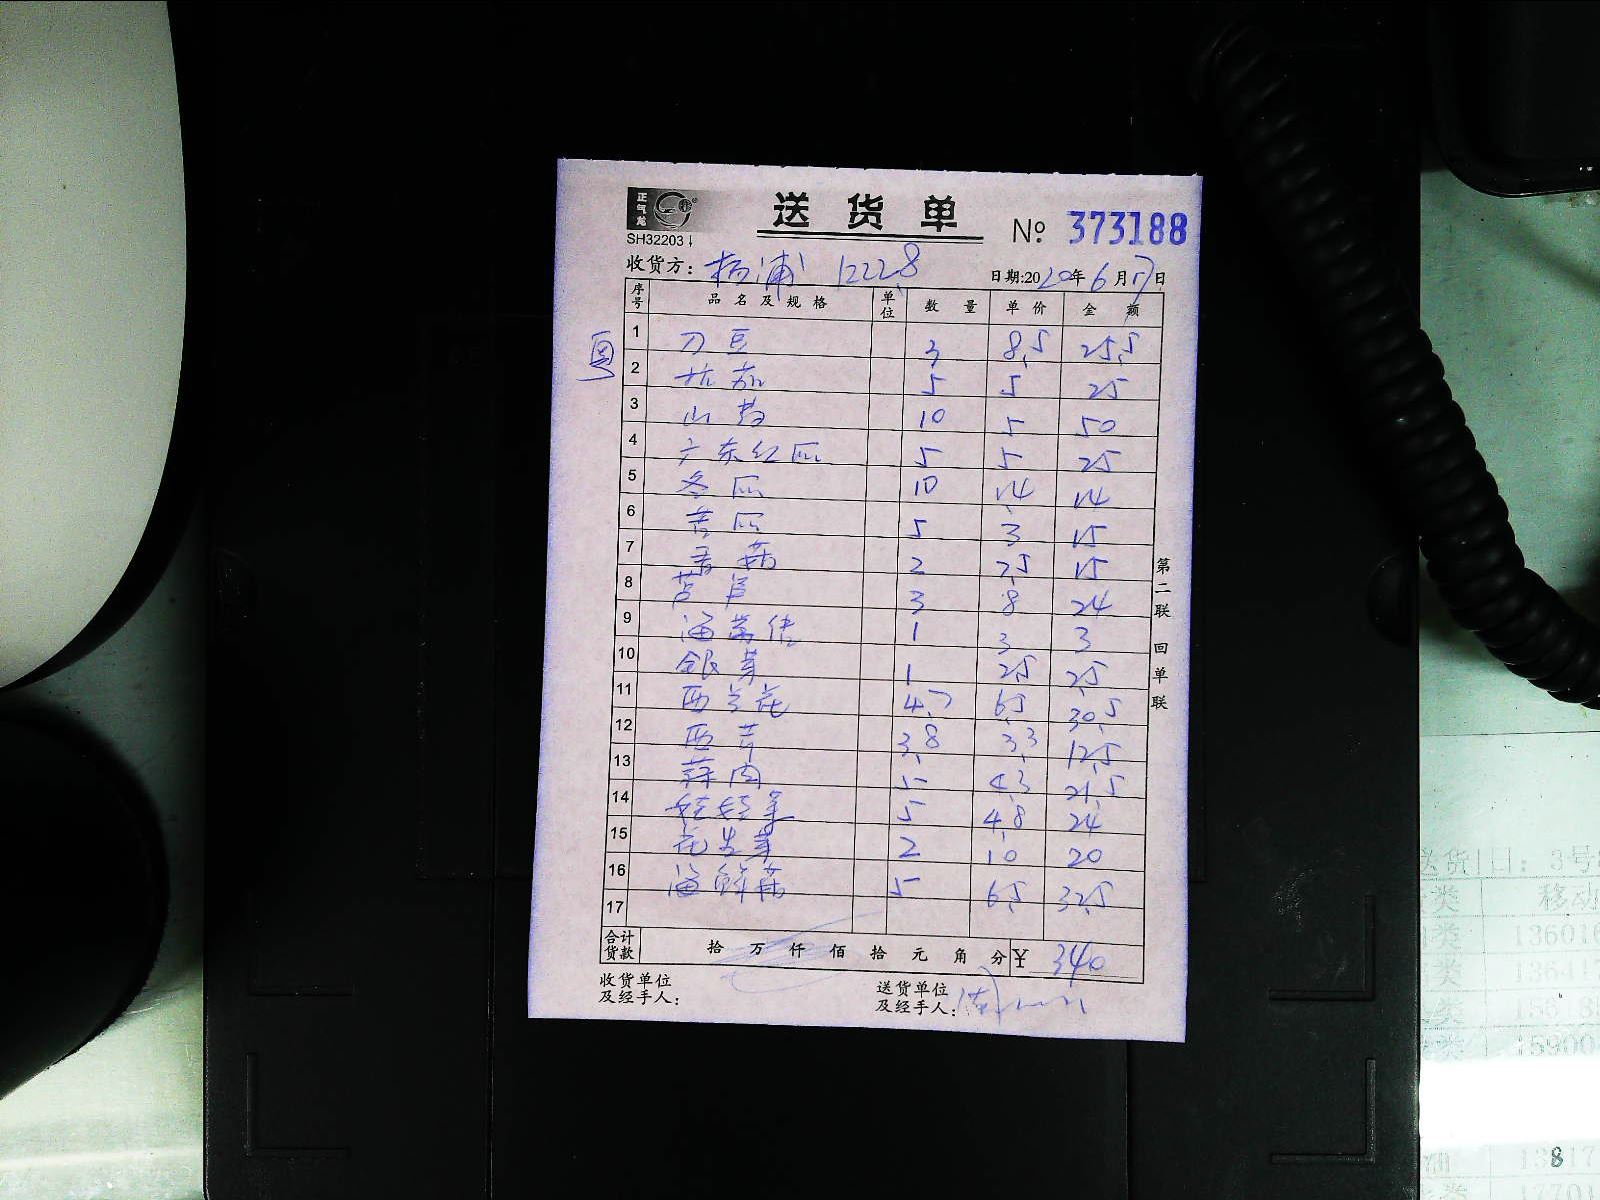 正气龙
送货单 № 373188
SH32203
收货方: 杨浦 12228 日期:2020年6月17日
序号 品名及规格 单位 数量 单价 金额
粤
1 刀豆 3 8.5 25.5
2 5 5 25
3 山药 10 5 50
4 广东红瓜 5 5 25
5 冬瓜 10 1.4 14
6 苦瓜 5 3 15
7 香菇 2 7.5 15
8 芦 3 8 24
9 海 1 3 3
10 银芽 1 2.5 2.5
11 西兰花 4.7 6.5 30.5
12 西芹 3.8 3.3 12.5
13 蒜肉 5 4.3 21.5
14 娃娃菜 5 4.8 24
15 花生芽 2 10 20
16 海鲜菇 5 6.5 32.5
17
合计货款 拾万仟佰拾元角分 ¥ 340
收货单位及经手人:
送货单位及经手人:
第二联 回单联
送货日: 3号
类 移动
类 1590